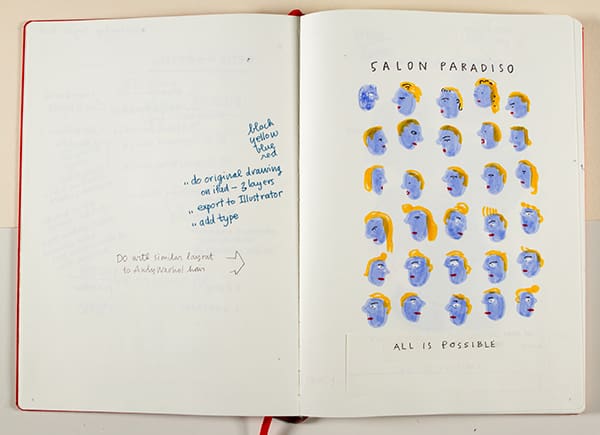 black
yellow
blue
red
.. do original drawing
on iPad – 3 layers
.. export to Illustrator
.. add type
Do with similar layout
to Andy Warhol
SALON PARADISO
ALL IS POSSIBLE